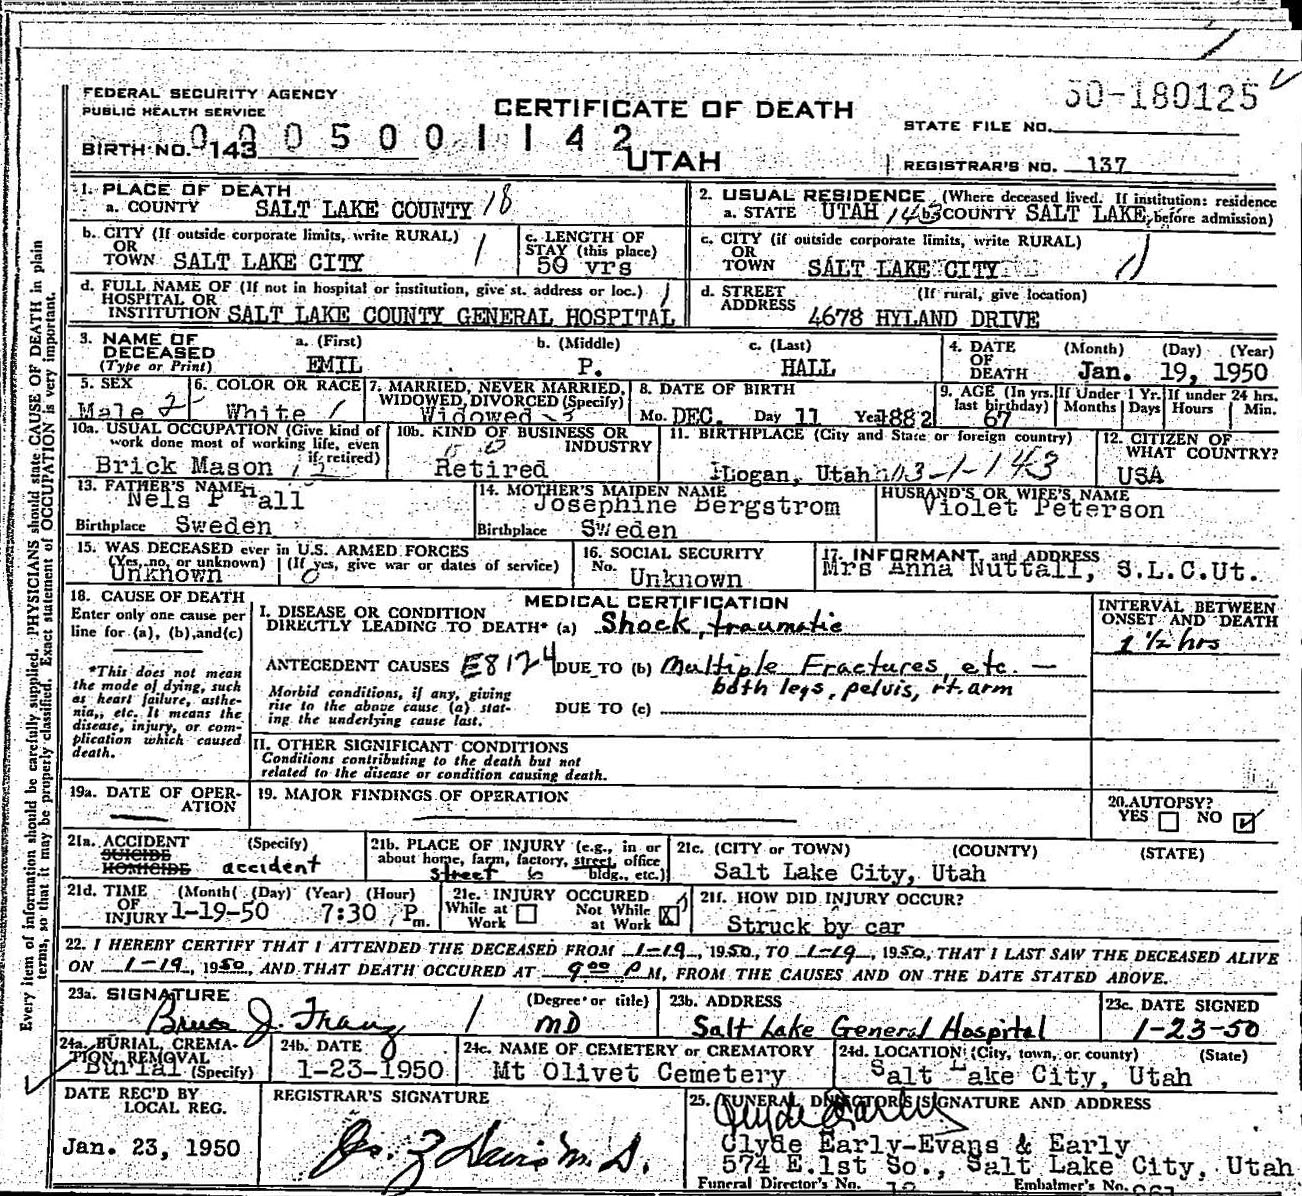 50-180125
FEDERAL SECURITY AGENCY
PUBLIC HEALTH SERVICE
CERTIFICATE OF DEATH
STATE FILE NO.
BIRTH NO. 143
0005001142
UTAH
REGISTRAR'S NO. 137
1. PLACE OF DEATH
a. COUNTY SALT LAKE COUNTY 18
2. USUAL RESIDENCE (Where deceased lived. If institution: residence before admission)
a. STATE UTAH 143 b. COUNTY SALT LAKE
b. CITY (If outside corporate limits, write RURAL)
OR
TOWN SALT LAKE CITY 1
c. LENGTH OF
STAY (this place)
50 yrs
c. CITY (if outside corporate limits, write RURAL)
OR
TOWN SALT LAKE CITY
d. FULL NAME OF (If not in hospital or institution, give st. address or loc.)
HOSPITAL OR
INSTITUTION SALT LAKE COUNTY GENERAL HOSPITAL
d. STREET (If rural, give location)
ADDRESS 4678 HYLAND DRIVE
3. NAME OF
DECEASED
(Type or Print)
a. (First) b. (Middle) c. (Last)
EMIL P. HALL
4. DATE (Month) (Day) (Year)
OF
DEATH Jan. 19, 1950
5. SEX
Male 2
6. COLOR OR RACE
White 1
7. MARRIED, NEVER MARRIED,
WIDOWED, DIVORCED (Specify)
Widowed 3
8. DATE OF BIRTH
Mo. DEC. Day 11 Year 1882
9. AGE (In yrs.
last birthday)
67
If Under 1 Yr.
Months Days
If under 24 hrs.
Hours Min.
10a. USUAL OCCUPATION (Give kind of
work done most of working life, even
if retired)
Brick Mason
10b. KIND OF BUSINESS OR
INDUSTRY
Retired
11. BIRTHPLACE (City and State or foreign country)
Logan, Utah 103-1-143
12. CITIZEN OF
WHAT COUNTRY?
USA
13. FATHER'S NAME
Nels P Hall
Birthplace Sweden
14. MOTHER'S MAIDEN NAME
Josephine Bergstrom
Birthplace Sweden
HUSBAND'S OR WIFE'S NAME
Violet Peterson
15. WAS DECEASED ever in U.S. ARMED FORCES
(Yes, no, or unknown) (If yes, give war or dates of service)
Unknown 0
16. SOCIAL SECURITY
No.
Unknown
17. INFORMANT and ADDRESS
Mrs Anna Nuttall, S.L.C.Ut.
18. CAUSE OF DEATH
Enter only one cause per
line for (a), (b), and (c)
*This does not mean
the mode of dying, such
as heart failure, asthe-
nia, etc. It means the
disease, injury, or com-
plication which caused
death.
MEDICAL CERTIFICATION
I. DISEASE OR CONDITION
DIRECTLY LEADING TO DEATH* (a) Shock, traumatic
ANTECEDENT CAUSES E8124 DUE TO (b) Multiple Fractures, etc. —
both legs, pelvis, rt. arm
Morbid conditions, if any, giving
rise to the above cause (a) stat-
ing the underlying cause last.
DUE TO (c)
INTERVAL BETWEEN
ONSET AND DEATH
1 1/2 hrs
II. OTHER SIGNIFICANT CONDITIONS
Conditions contributing to the death but not
related to the disease or condition causing death.
19a. DATE OF OPER-
ATION
19. MAJOR FINDINGS OF OPERATION
20. AUTOPSY?
YES NO
21a. ACCIDENT (Specify)
SUICIDE
HOMICIDE accident
21b. PLACE OF INJURY (e.g., in or
about home, farm, factory, street, office
bldg., etc.)
street 6
21c. (CITY or TOWN) (COUNTY) (STATE)
Salt Lake City, Utah
21d. TIME (Month) (Day) (Year) (Hour)
OF
INJURY 1-19-50 7:30 P m.
21e. INJURY OCCURED
While at Work Not While at Work X
21f. HOW DID INJURY OCCUR?
Struck by car
22. I HEREBY CERTIFY THAT I ATTENDED THE DECEASED FROM 1-19, 1950, TO 1-19, 1950, THAT I LAST SAW THE DECEASED ALIVE
ON 1-19, 1950, AND THAT DEATH OCCURED AT 9 00 P M, FROM THE CAUSES AND ON THE DATE STATED ABOVE.
23a. SIGNATURE (Degree or title)
Bruce J. MD
23b. ADDRESS
Salt Lake General Hospital
23c. DATE SIGNED
1-23-50
24a. BURIAL, CREMA-
TION, REMOVAL
Burial (Specify)
24b. DATE
1-23-1950
24c. NAME OF CEMETERY or CREMATORY
Mt Olivet Cemetery
24d. LOCATION (City, town, or county) (State)
Salt Lake City, Utah
DATE REC'D BY
LOCAL REG.
Jan. 23, 1950
REGISTRAR'S SIGNATURE
25. FUNERAL DIRECTOR'S SIGNATURE AND ADDRESS
Clyde Early
Clyde Early-Evans & Early
574 E.1st So., Salt Lake City, Utah
Funeral Director's No. Embalmer's No.
Every item of information should be carefully supplied. PHYSICIANS should state CAUSE OF DEATH in plain
terms, so that it may be properly classified. Exact statement of OCCUPATION is very important.